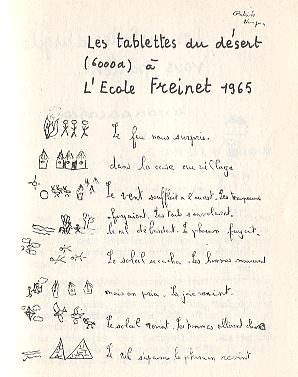 Les tablettes du désert
(6000a) à
L'Ecole Freinet 1965
Le feu nous surprit.
dans la case au village
Le vent soufflait à l'ouest. Les
fuyaient. Les toits s'envolèrent.
le nil débordait. Le pharaon fuyait.
Le soleil se cacha. Les hommes meurent
mais on pria. La joie revint.
Le soleil revint. Les hommes allèrent dans
Le nil séparé le pharaon revint